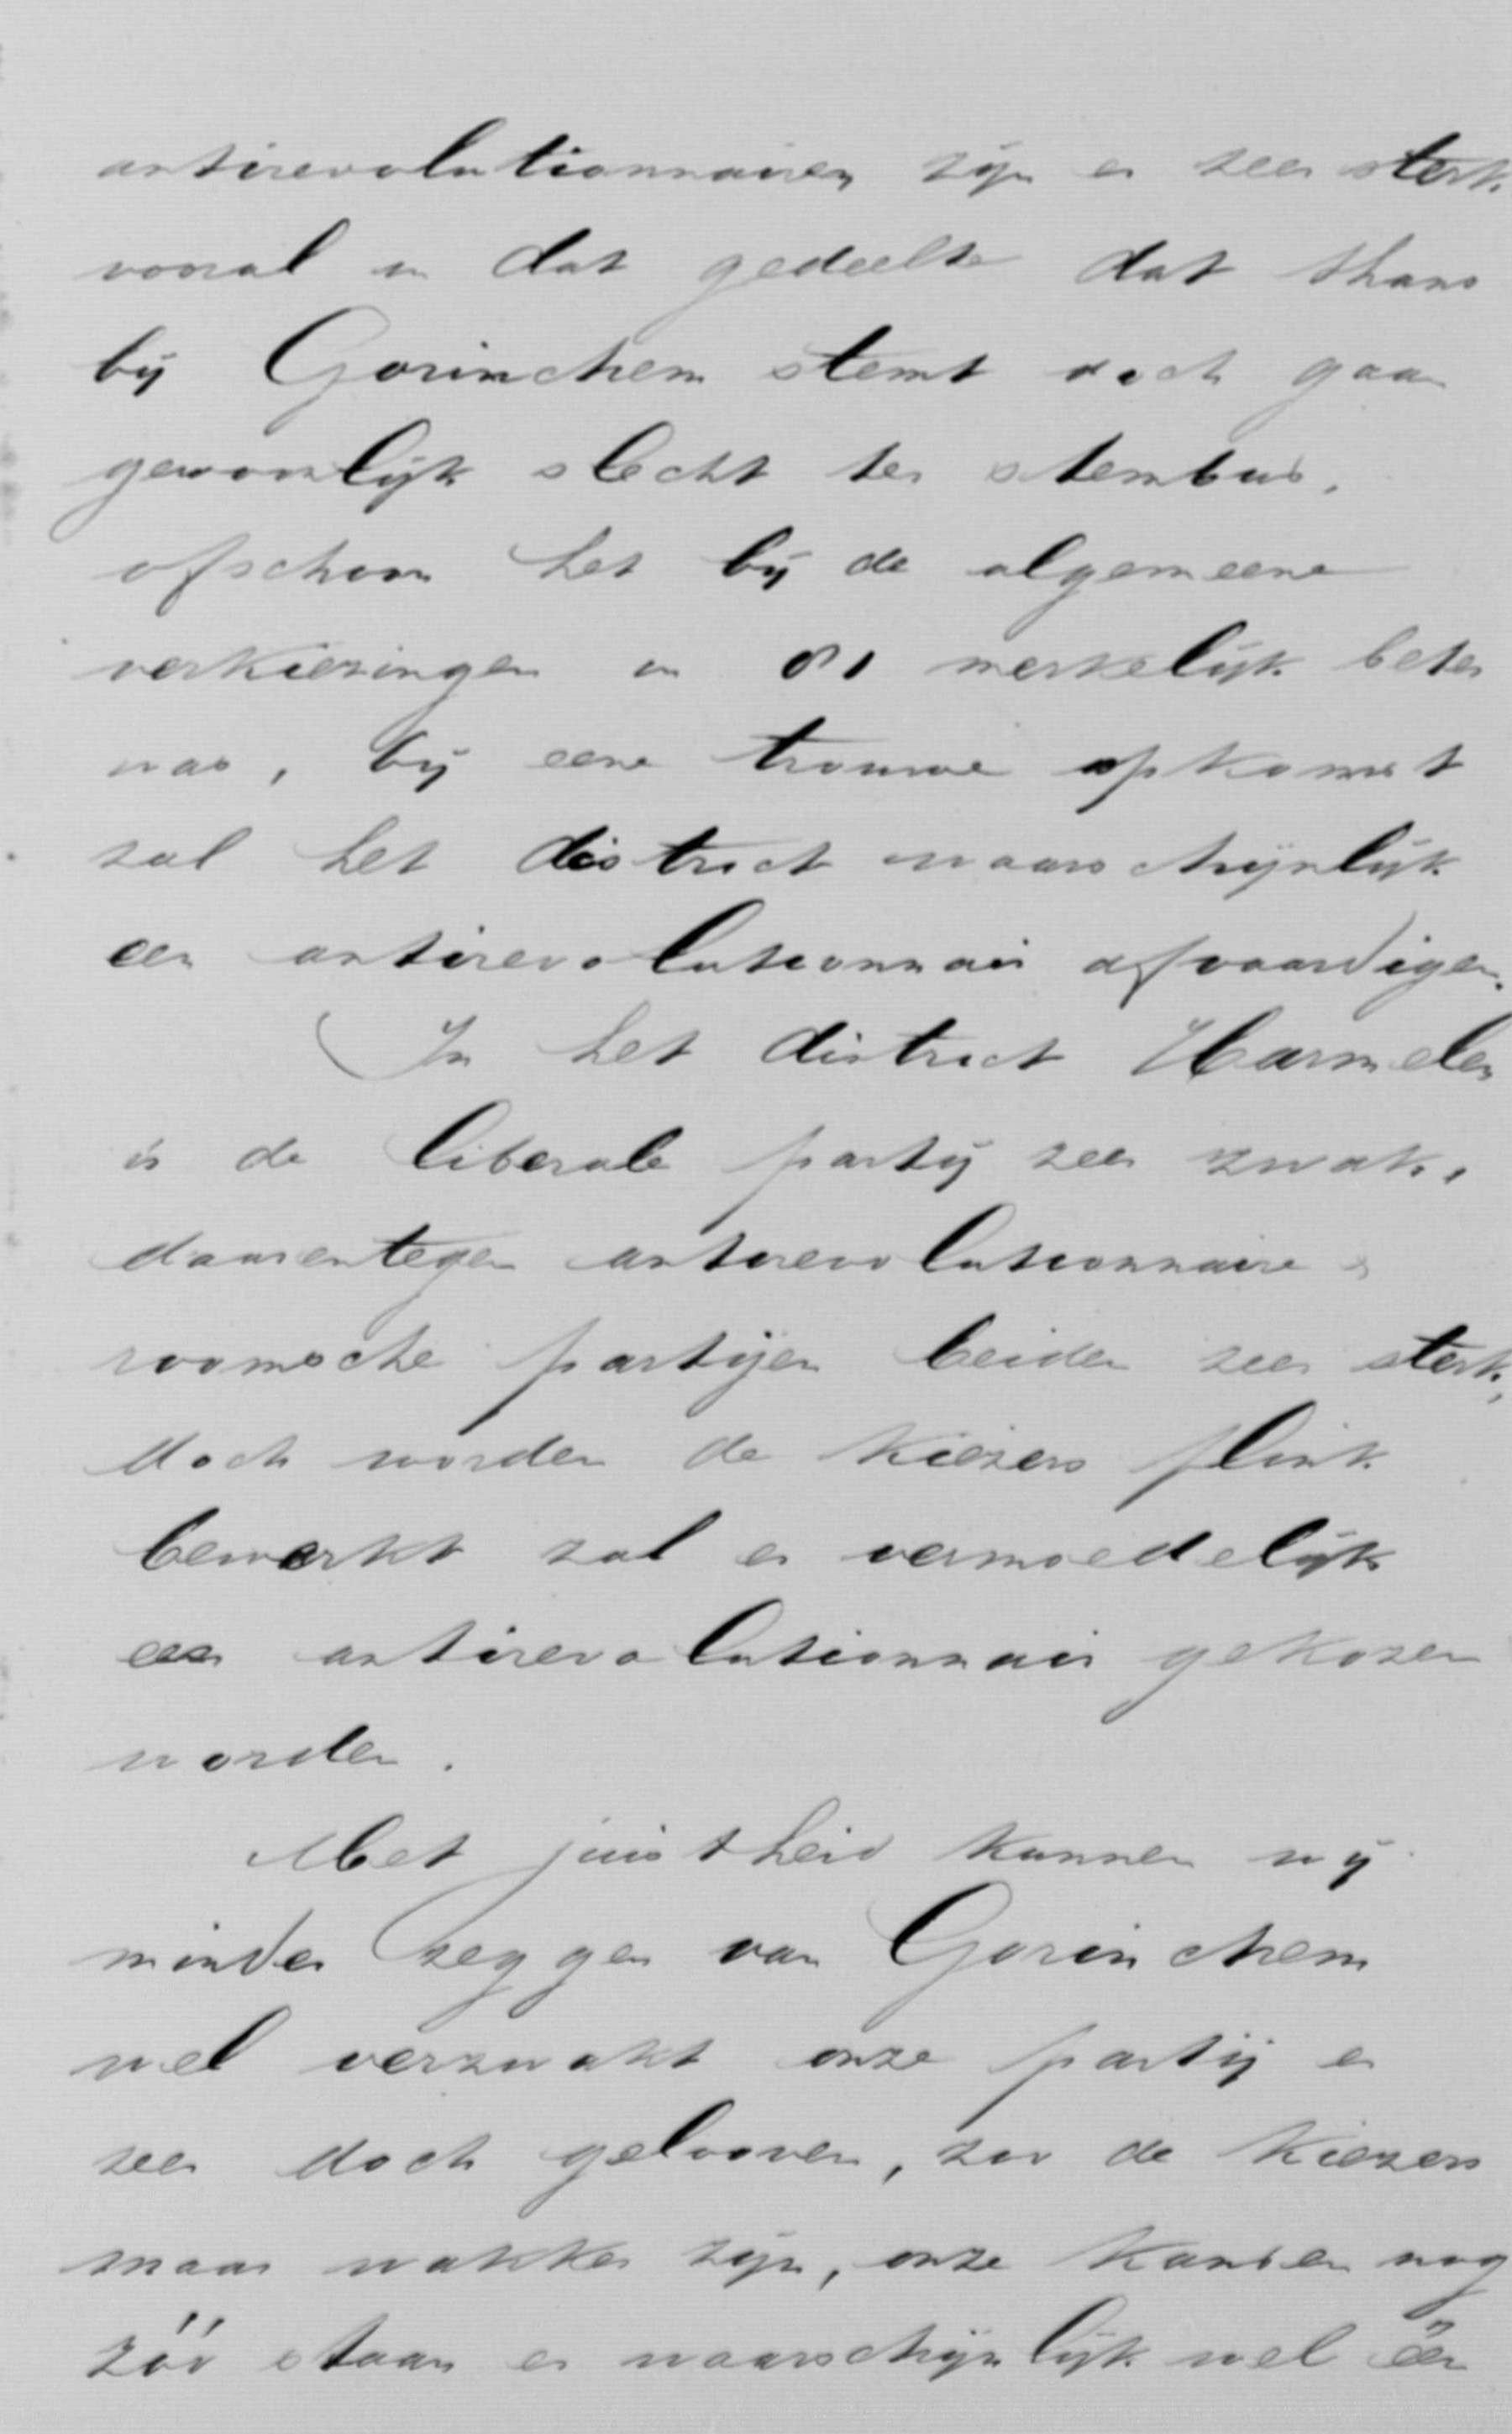 antirevolutionnairen zijn er zeer sterk
vooral in dat gedeelte dat thans
bij Gorinchem stemt doch gaan
gewoonlijk slecht ter stembus,
ofschoon het bij de algemeene
verkiezingen in 81 merkelijk beter
was, bij eene trouwe opkomst
zal het district waarschijnlijk
een antirevolutionnair afvaardigen.
In het district Harmelen
is de liberale partij zeer zwak,
daarentegen antirevolutionnaire &
roomsche partijen beiden zeer sterk,
doch worden de kiezers flink
bewerkt zal er vermoedelijk
een antirevolutionnair gekozen
worden.
Met juistheid kunnen wij
minder zeggen van Gorinchem
wel verzwakt onze partij er
zeer doch gelooven, zoo de kiezers
maar wakker zijn, onze kansen nog
zóó staan er waarschijnlijk wel één